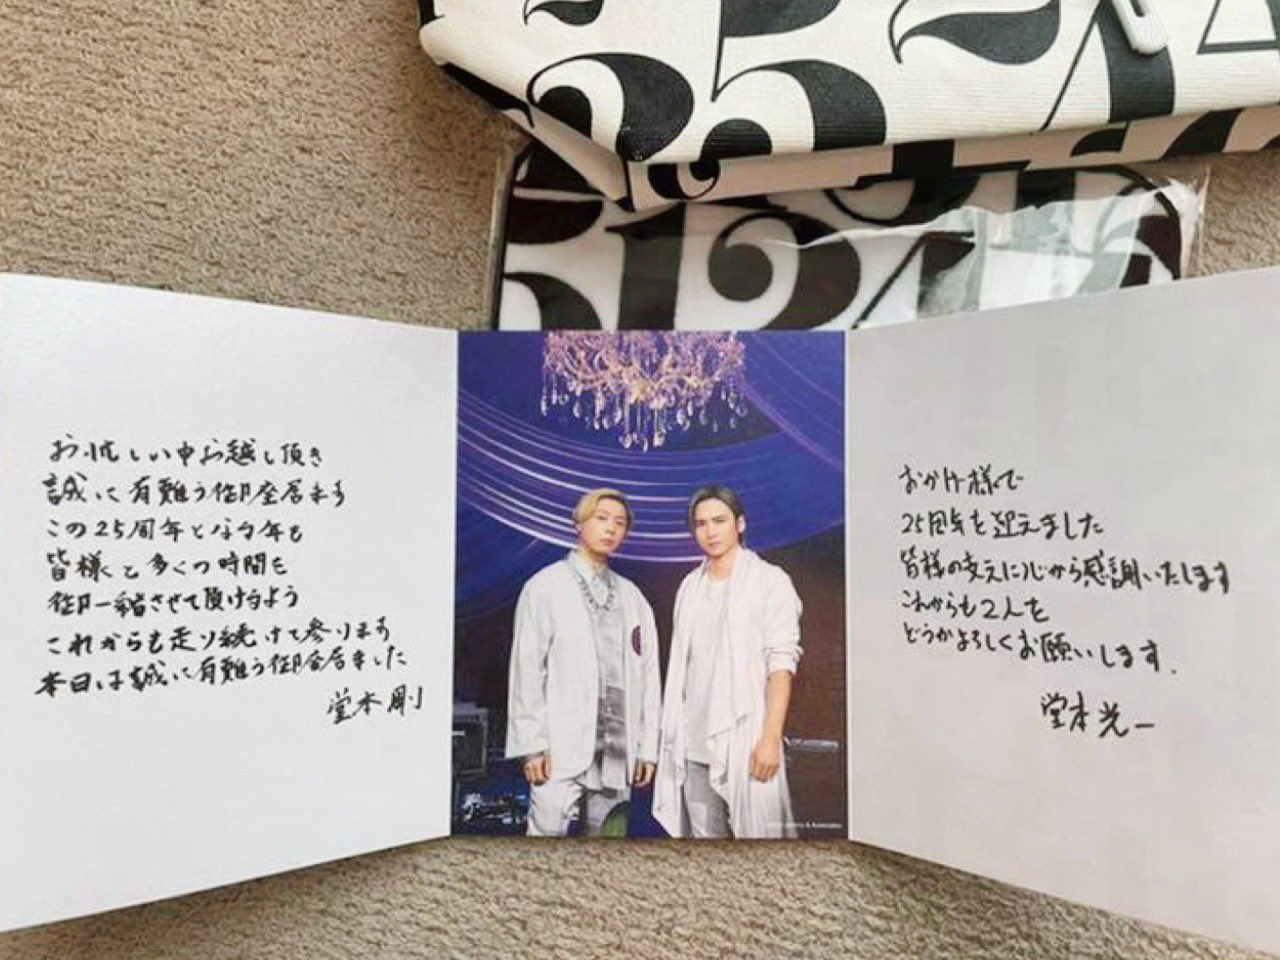 お忙しい中お越し頂き
誠に有難う御座居ます
この25周年となる年も
皆様と多くの時間を
御一緒させて頂けるよう
これからも走り続けて参ります
本日は誠に有難う御座居ました
堂本剛
おかげ様で
25周年を迎えました
皆様の支えに心から感謝いたします
これからも2人を
どうかよろしくお願いします.
堂本光一
Johnny & Associates